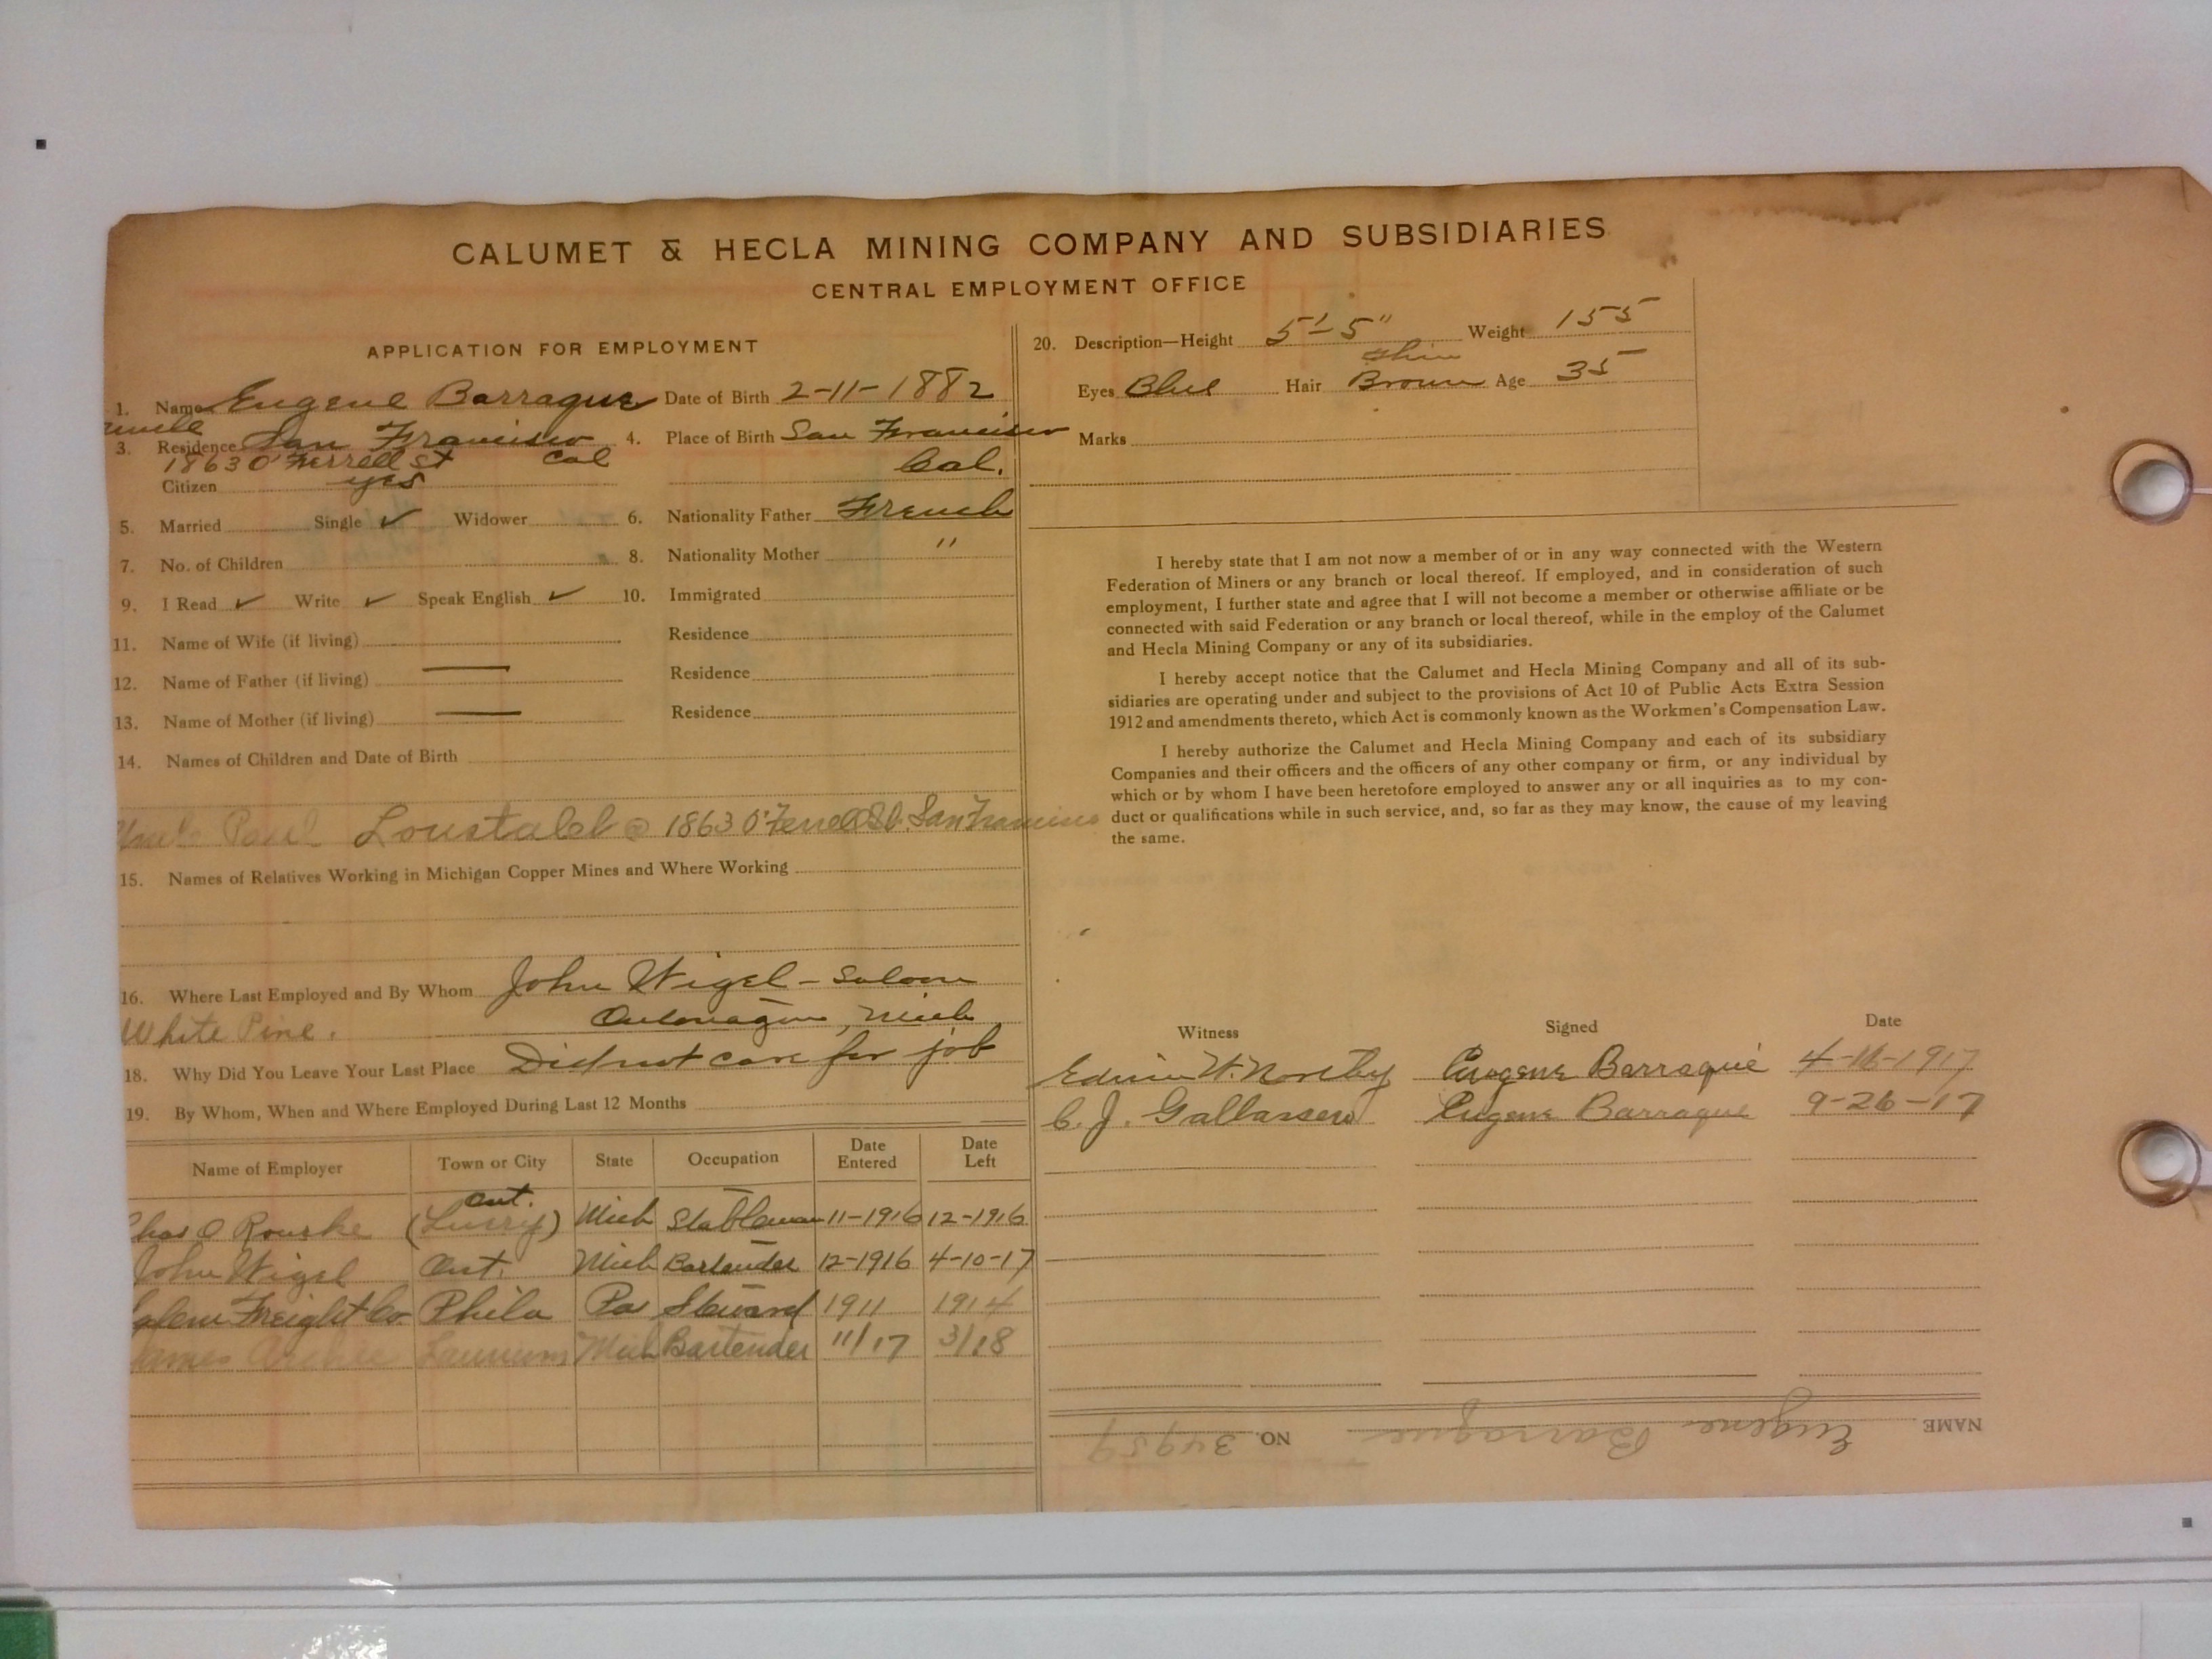 CALUMET & HECLA MINING COMPANY AND SUBSIDIARIES
CENTRAL EMPLOYMENT OFFICE
APPLICATION FOR EMPLOYMENT
1. Name Eugene Barraque Date of Birth 2-11-1882
uncle
3. Residence San Francisco 4. Place of Birth San Francisco
1863 O'Ferrell St Cal Cal.
Citizen yes
5. Married Single ✓ Widower 6. Nationality Father French
7. No. of Children 8. Nationality Mother "
9. I Read ✓ Write ✓ Speak English ✓ 10. Immigrated
11. Name of Wife (if living) Residence
12. Name of Father (if living) — Residence
13. Name of Mother (if living) — Residence
14. Names of Children and Date of Birth
Uncle Paul Loustalet @ 1863 O'Ferrell St. San Francisco
15. Names of Relatives Working in Michigan Copper Mines and Where Working
16. Where Last Employed and By Whom John Wigel - Saloon
White Pine. Ontonagon, Mich
18. Why Did You Leave Your Last Place Did not care for job
19. By Whom, When and Where Employed During Last 12 Months
Name of Employer Town or City State Occupation Date Entered Date Left
Chas O Rourke Ont. (Livery) Mich Stableman 11-1916 12-1916
John Wigel Ont. Mich Bartender 12-1916 4-10-17
Freight Co. Phila Pa Steward 1911 1914
James Mich Bartender 11/17 3/18
20. Description—Height 5'-5" Weight 155
Thin
Eyes Blue Hair Brown Age 35
Marks
I hereby state that I am not now a member of or in any way connected with the Western
Federation of Miners or any branch or local thereof. If employed, and in consideration of such
employment, I further state and agree that I will not become a member or otherwise affiliate or be
connected with said Federation or any branch or local thereof, while in the employ of the Calumet
and Hecla Mining Company or any of its subsidiaries.
I hereby accept notice that the Calumet and Hecla Mining Company and all of its sub-
sidiaries are operating under and subject to the provisions of Act 10 of Public Acts Extra Session
1912 and amendments thereto, which Act is commonly known as the Workmen's Compensation Law.
I hereby authorize the Calumet and Hecla Mining Company and each of its subsidiary
Companies and their officers and the officers of any other company or firm, or any individual by
which or by whom I have been heretofore employed to answer any or all inquiries as to my con-
duct or qualifications while in such service, and, so far as they may know, the cause of my leaving
the same.
Witness Signed Date
Edwin W. Northey Eugene Barraqué 4-16-1917
C. J. Eugene Barraque 9-26-17
NAME Eugene Barraque NO. 34959